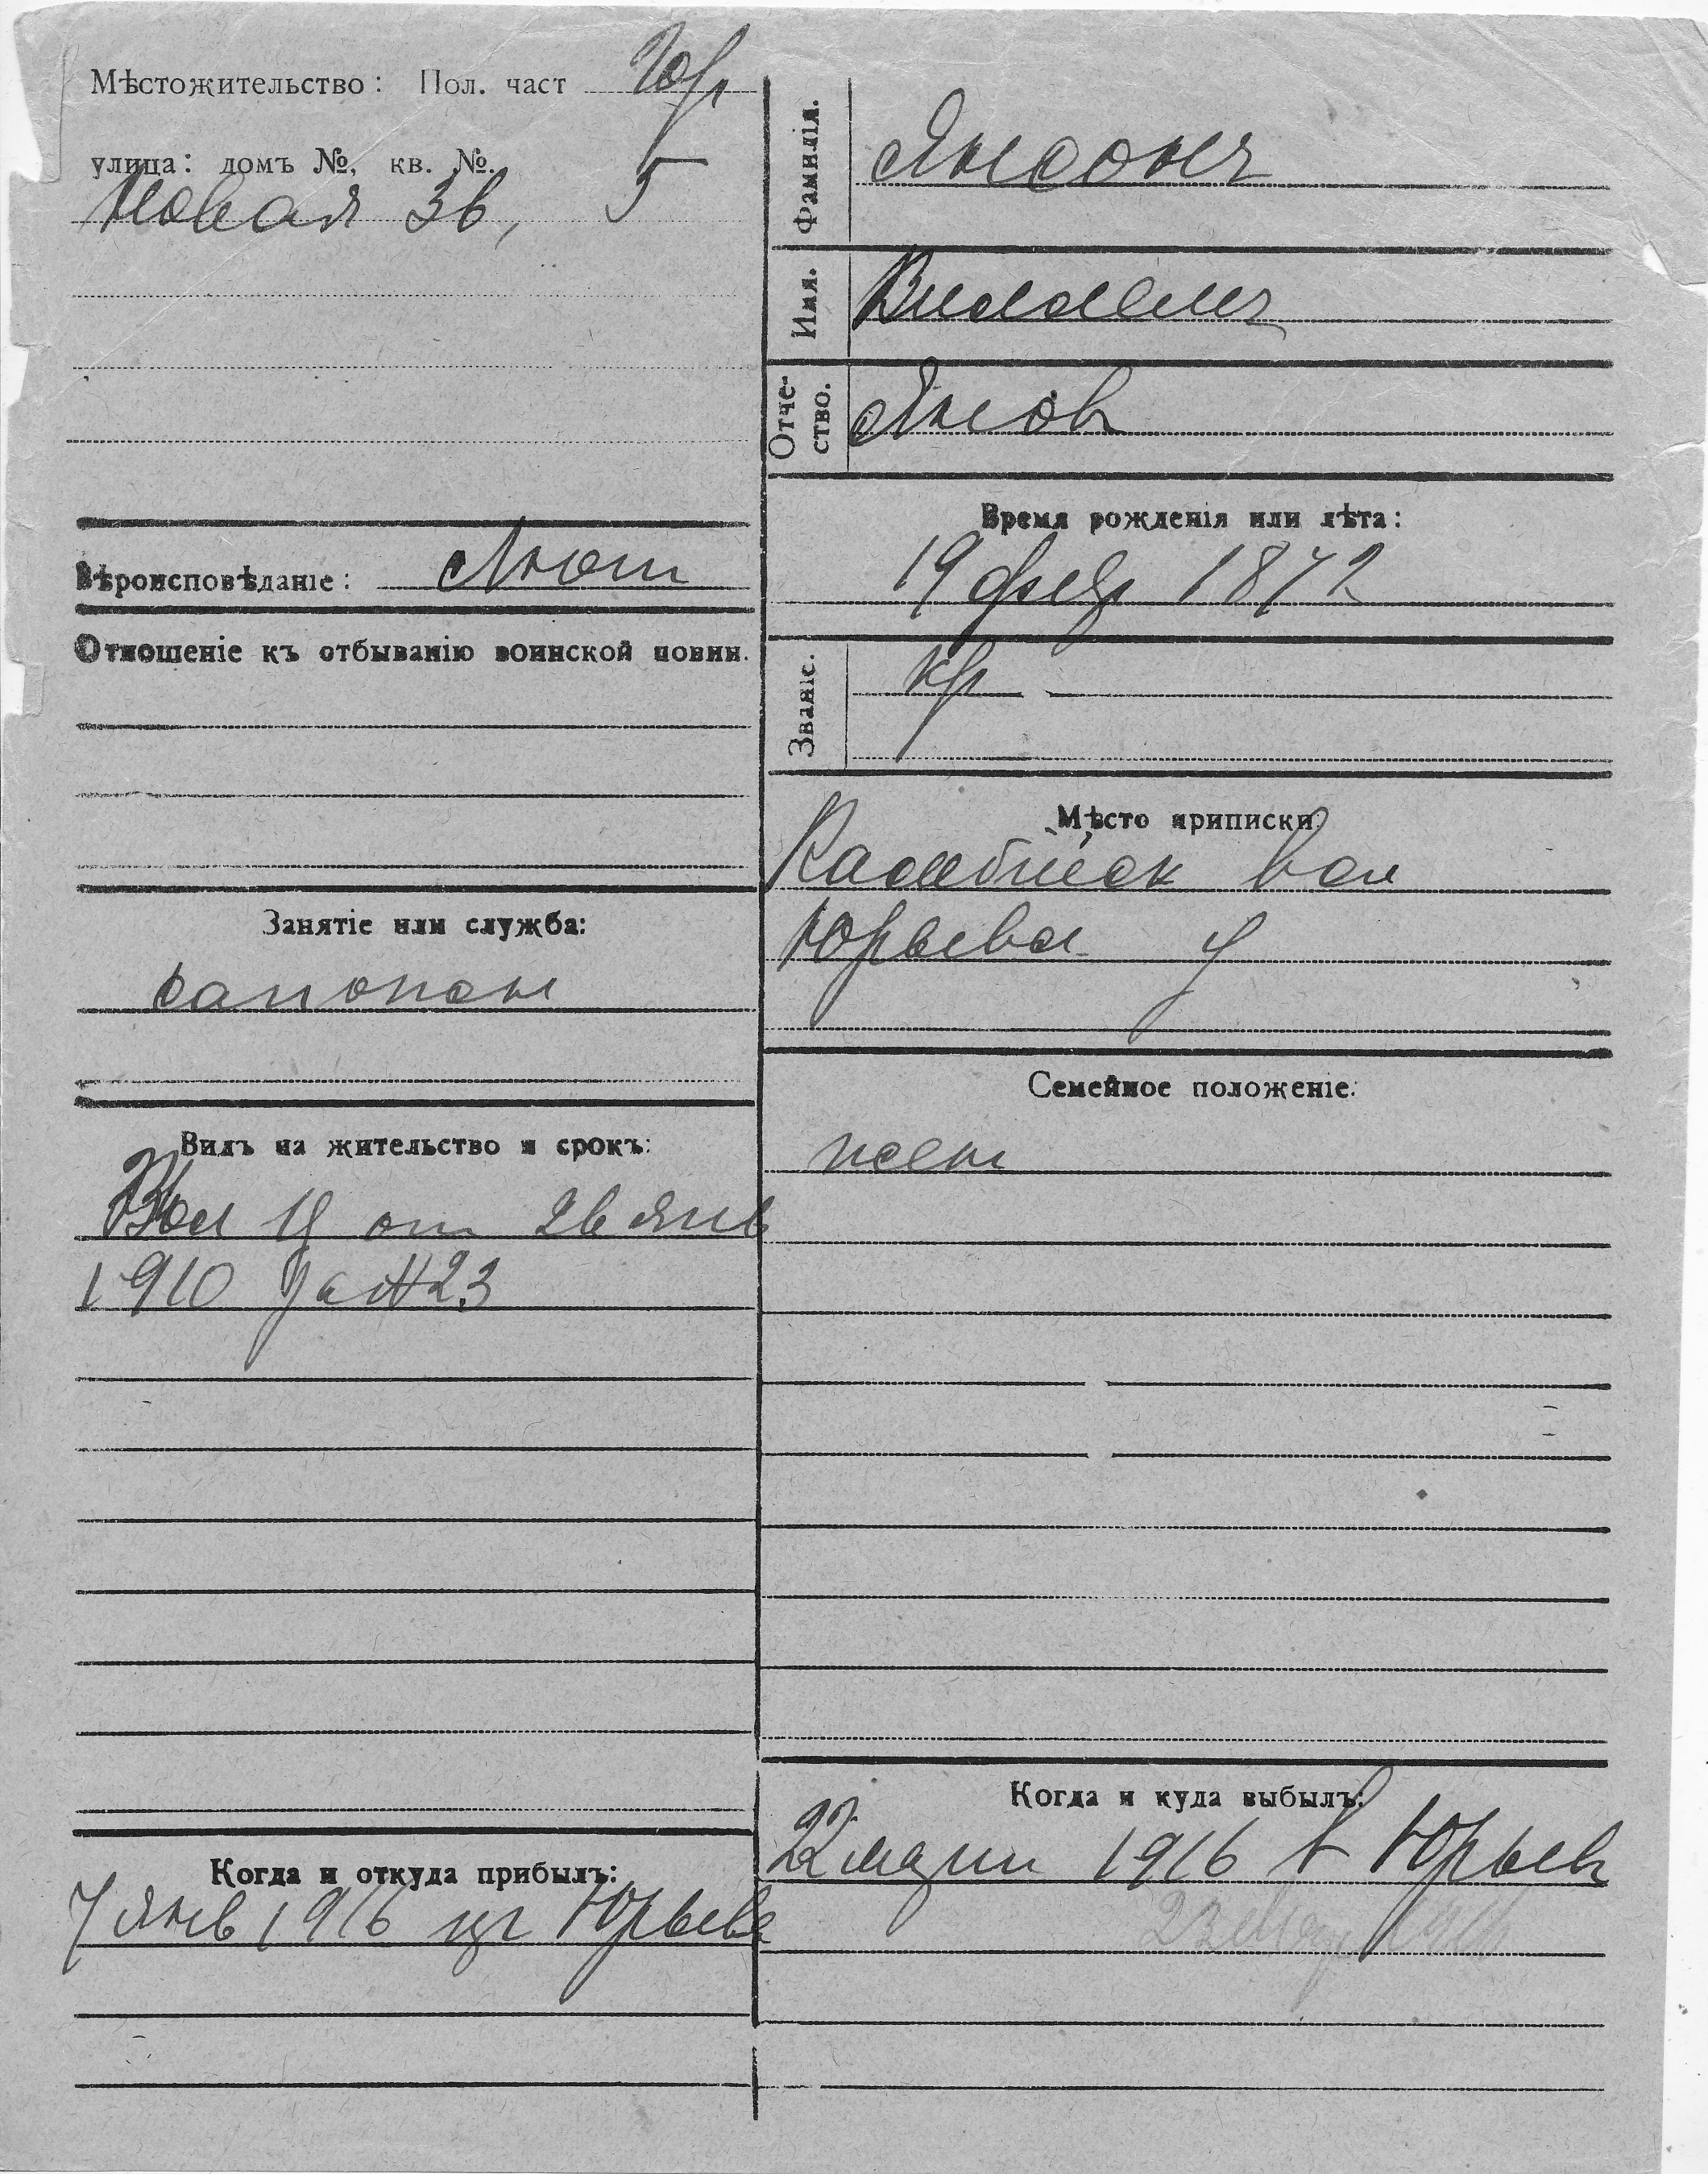 Мѣстожительство: Пол. част Юр
улица: домъ №, кв. №.
Новая 3в, 5
Вѣроисповѣданіе: Лют
Отношеніе къ отбыванію воинской повин.
Занятіе или служба:
сапожн
Видъ на жительство и срокъ:
19 от 26 янв
1910 за №23
Когда и откуда прибылъ:
7 янв 1916 из Юрьева
Фамилія. Янсонъ
Имя. Виллемъ
Отче-
ство. Янов
Время рожденія или лѣта:
19 февр 1872
Званіе. кр
Мѣсто приписки:
вол
Юрьевск у
Семейное положеніе:
жен
Когда и куда выбылъ:
22 марта 1916 в Юрьев
23 Мар 1916